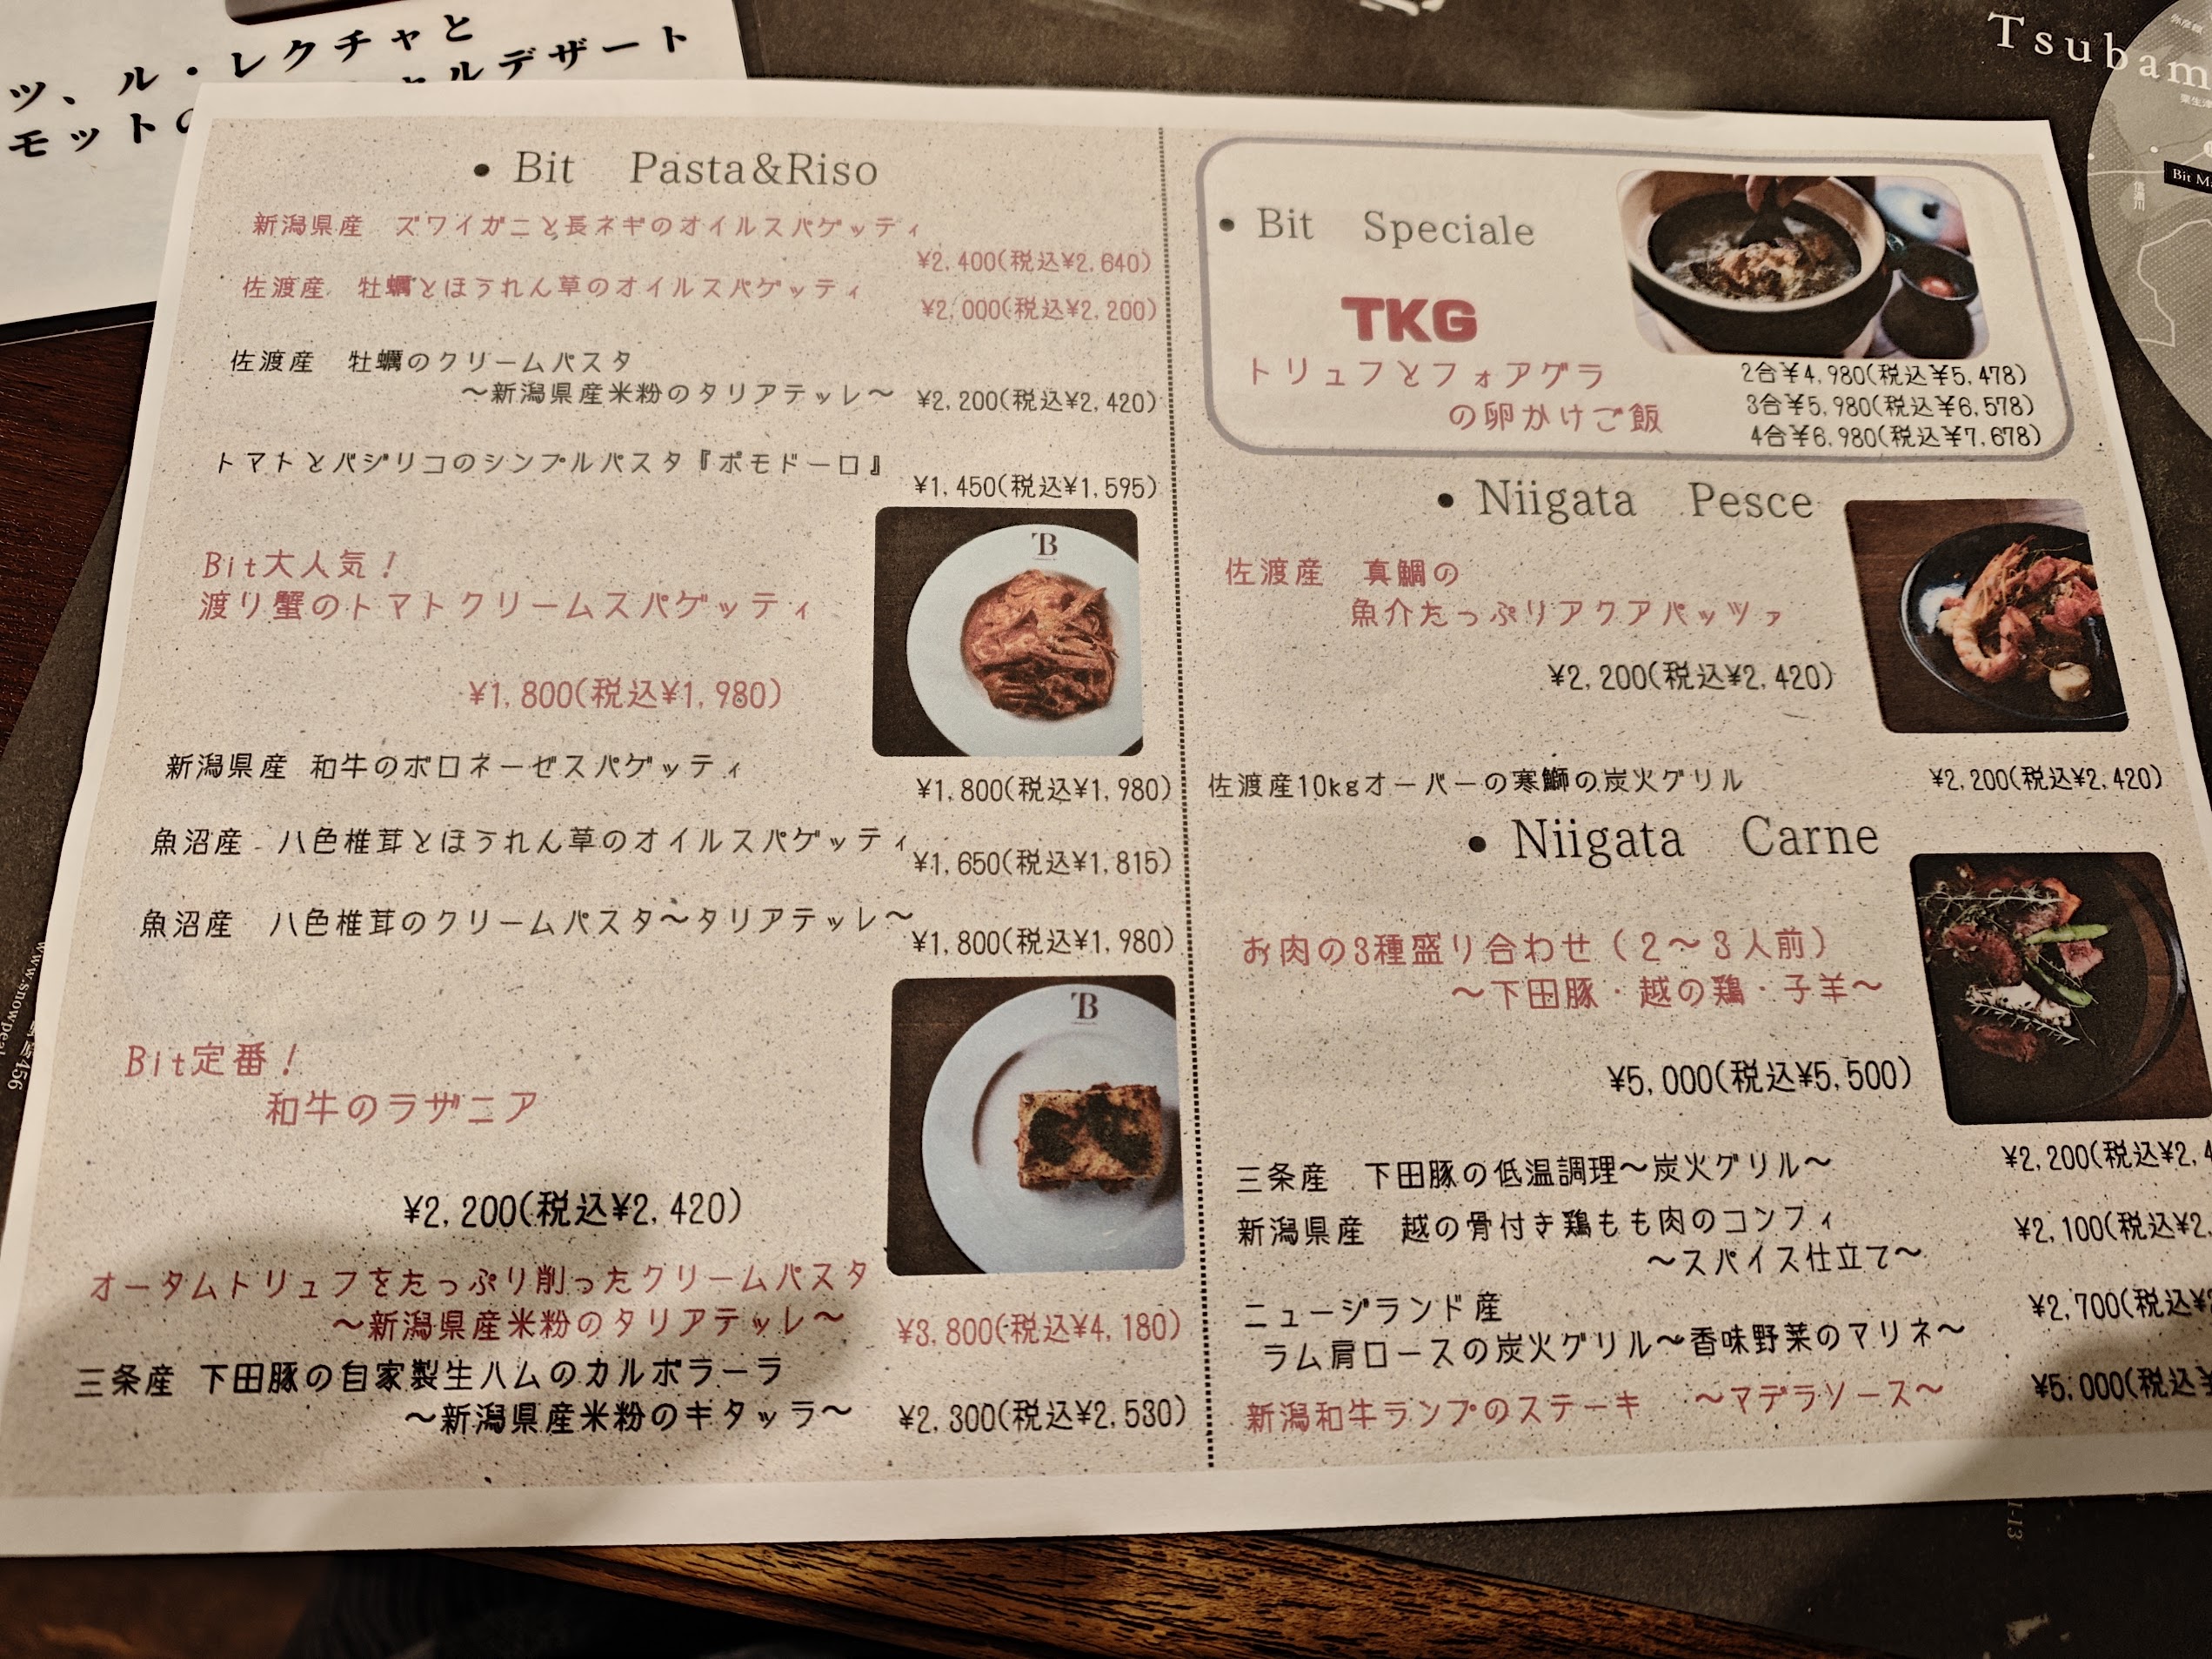 ツ、ル・レクチャと
モットの
ルデザート
Tsubam
Bit M
• Bit Pasta&Riso
新潟県産 ズワイガニと長ネギのオイルスパゲッティ
¥2,400(税込¥2,640)
佐渡産 牡蠣とほうれん草のオイルスパゲッティ
¥2,000(税込¥2,200)
佐渡産 牡蠣のクリームパスタ
～新潟県産米粉のタリアテッレ～ ¥2,200(税込¥2,420)
トマトとバジリコのシンプルパスタ『ポモドーロ』
¥1,450(税込¥1,595)
Bit大人気！
渡り蟹のトマトクリームスパゲッティ
¥1,800(税込¥1,980)
B
新潟県産 和牛のボロネーゼスパゲッティ
¥1,800(税込¥1,980)
魚沼産 八色椎茸とほうれん草のオイルスパゲッティ
¥1,650(税込¥1,815)
魚沼産 八色椎茸のクリームパスタ～タリアテッレ～
¥1,800(税込¥1,980)
B
Bit定番！
和牛のラザニア
¥2,200(税込¥2,420)
オータムトリュフをたっぷり削ったクリームパスタ
～新潟県産米粉のタリアテッレ～ ¥3,800(税込¥4,180)
三条産 下田豚の自家製生ハムのカルボラーラ
～新潟県産米粉のキタッラ～ ¥2,300(税込¥2,530)
• Bit Speciale
TKG
トリュフとフォアグラ
の卵かけご飯
2合¥4,980(税込¥5,478)
3合¥5,980(税込¥6,578)
4合¥6,980(税込¥7,678)
• Niigata Pesce
佐渡産 真鯛の
魚介たっぷりアクアパッツァ
¥2,200(税込¥2,420)
佐渡産10kgオーバーの寒鰤の炭火グリル ¥2,200(税込¥2,420)
• Niigata Carne
お肉の3種盛り合わせ（2～3人前）
～下田豚・越の鶏・子羊～
¥5,000(税込¥5,500)
三条産 下田豚の低温調理～炭火グリル～ ¥2,200(税込¥2,4
新潟県産 越の骨付き鶏もも肉のコンフィ ¥2,100(税込¥2,
～スパイス仕立て～
ニュージランド産 ¥2,700(税込¥
ラム肩ロースの炭火グリル～香味野菜のマリネ～
新潟和牛ランプのステーキ ～マデラソース～ ¥5,000(税込¥
456
www.snowpea
1-13